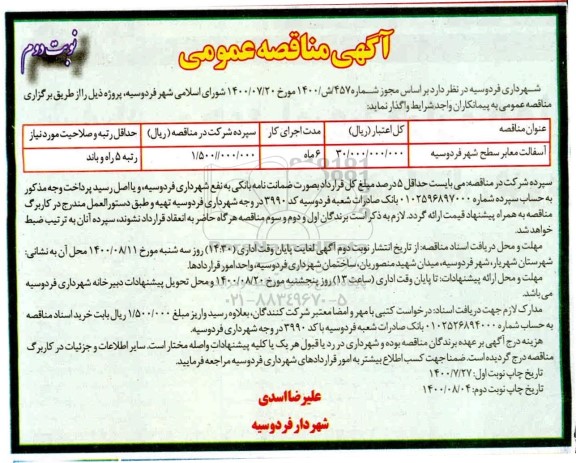 آگهی مناقصه عمومی
نوبت دوم
شهرداری فردوسیه در نظر دارد بر اساس مجوز شماره ۴۵۷/ش/۱۴۰۰ مورخ ۱۴۰۰/۰۷/۲۰ شورای اسلامی شهر فردوسیه، پروژه ذیل را از طریق برگزاری
مناقصه عمومی به پیمانکاران واجد شرایط واگذار نماید:
عنوان مناقصه	کل اعتبار (ریال)	مدت اجرای کار	سپرده شرکت در مناقصه (ریال)	حداقل رتبه و صلاحیت مورد نیاز
آسفالت معابر سطح شهر فردوسیه	۳۰/۰۰۰/۰۰۰/۰۰۰	۶ ماه	۱/۵۰۰/۰۰۰/۰۰۰	رتبه ۵ راه و باند
سپرده شرکت در مناقصه: می بایست حداقل ۵ درصد مبلغ کل قرارداد بصورت ضمانت نامه بانکی به نفع شهرداری فردوسیه، و یا اصل رسید پرداخت وجه مذکور
به حساب سپرده شماره ۰۱۰۲۵۹۶۸۹۷۰۰۰ بانک صادرات شعبه فردوسیه کد ۳۹۹۰ در وجه شهرداری فردوسیه تهیه و طبق دستورالعمل مندرج در کاربرگ
مناقصه به همراه پیشنهاد قیمت ارائه گردد. لازم به ذکر است برندگان اول و دوم و سوم مناقصه هرگاه حاضر به انعقاد قرارداد نشوند، سپرده آنان به ترتیب ضبط
خواهد شد.
مهلت و محل دریافت اسناد مناقصه: از تاریخ انتشار نوبت دوم آگهی لغایت پایان وقت اداری (۱۴:۳۰) روز سه شنبه مورخ ۱۴۰۰/۰۸/۱۱ محل آن به نشانی:
شهرستان شهریار، شهر فردوسیه، میدان شهید منصوریان، ساختمان شهرداری فردوسیه، واحد امور قراردادها.
مهلت و محل ارائه پیشنهادات: تا پایان وقت اداری (ساعت ۱۳) روز پنجشنبه مورخ ۱۴۰۰/۰۸/۲۰ و محل تحویل پیشنهادات دبیرخانه شهرداری فردوسیه
می باشد.
مدارک لازم جهت دریافت اسناد: درخواست کتبی با مهر و امضا معتبر شرکت کنندگان، بعلاوه رسید واریز مبلغ ۱/۵۰۰/۰۰۰ ریال بابت خرید اسناد مناقصه
به حساب شماره ۰۱۰۲۵۲۶۸۹۴۰۰۰ بانک صادرات شعبه فردوسیه با کد ۳۹۹۰ در وجه شهرداری فردوسیه.
هزینه درج آگهی بر عهده برندگان مناقصه بوده و شهرداری در رد یا قبول هر یک یا کلیه پیشنهادات واصله مختار است. سایر اطلاعات و جزئیات در کاربرگ
مناقصه درج گردیده است. ضمنا جهت کسب اطلاع بیشتر به امور قراردادهای شهرداری فردوسیه مراجعه فرمایید.
تاریخ چاپ نوبت اول: ۱۴۰۰/۷/۲۷
تاریخ چاپ نوبت دوم: ۱۴۰۰/۰۸/۰۴
علیرضا اسدی
شهردار فردوسیه
۰۲۱-۸۸۳۴۹۶۷۰-۵